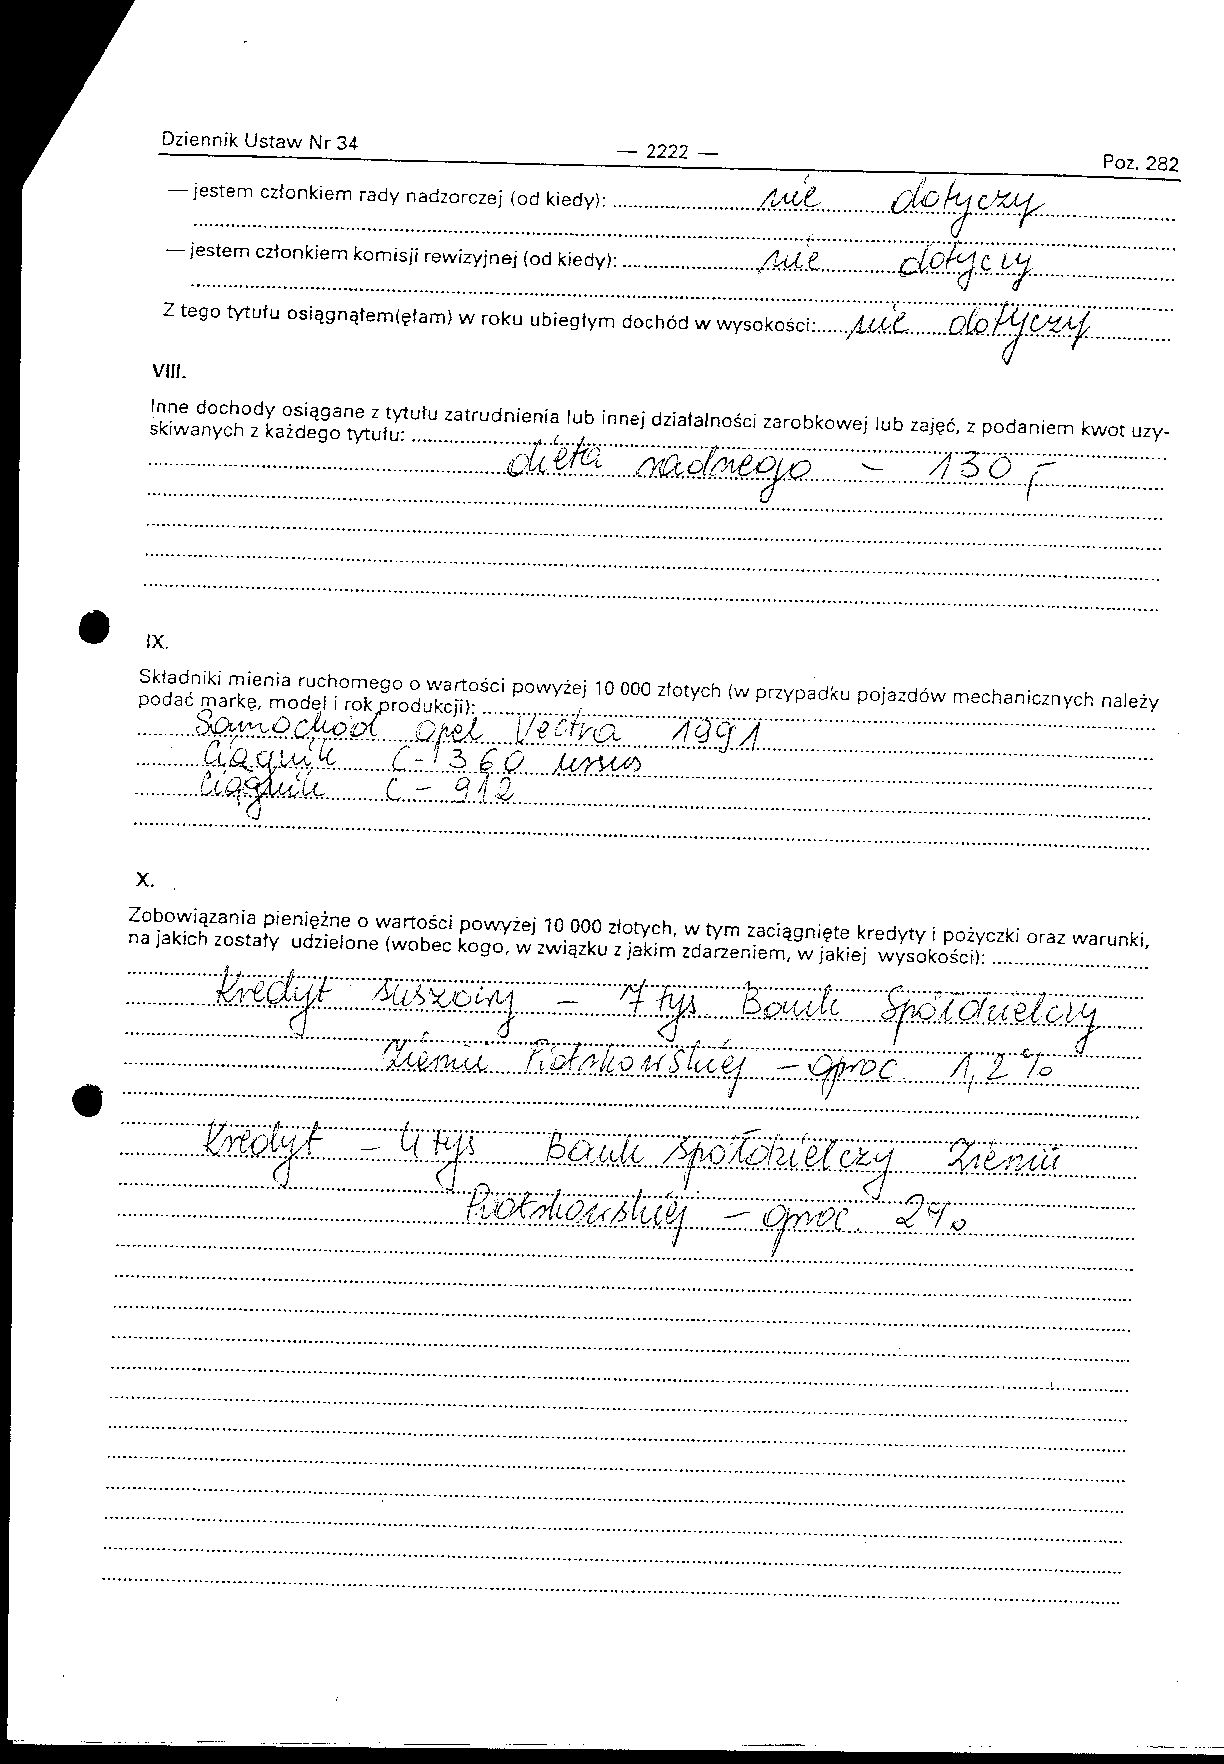 Dziennik Ustaw Nr 34 — 2222 — Poz. 282
— jestem członkiem rady nadzorczej (od kiedy): nie dotyczy
— jestem członkiem komisji rewizyjnej (od kiedy): nie dotyczy
Z tego tytułu osiągnąłem(ęłam) w roku ubiegłym dochód w wysokości: nie dotyczy
VIII.
Inne dochody osiągane z tytułu zatrudnienia lub innej działalności zarobkowej lub zajęć, z podaniem kwot uzy-
skiwanych z każdego tytułu:
dieta radnego – 130,-
IX.
Składniki mienia ruchomego o wartości powyżej 10 000 złotych (w przypadku pojazdów mechanicznych należy
podać markę, model i rok produkcji):
Samochód Opel Vectra 1991
Ciągnik C-360 ursus
Ciągnik C-912
X.
Zobowiązania pieniężne o wartości powyżej 10 000 złotych, w tym zaciągnięte kredyty i pożyczki oraz warunki,
na jakich zostały udzielone (wobec kogo, w związku z jakim zdarzeniem, w jakiej wysokości):
Kredyt suszowy – 7 tys Bank Spółdzielczy
Ziemi Piotrkowskiej – oproc 1,2%
Kredyt – 4 tys Bank spółdzielczy Ziemi
Piotrkowskiej – oproc. 2%